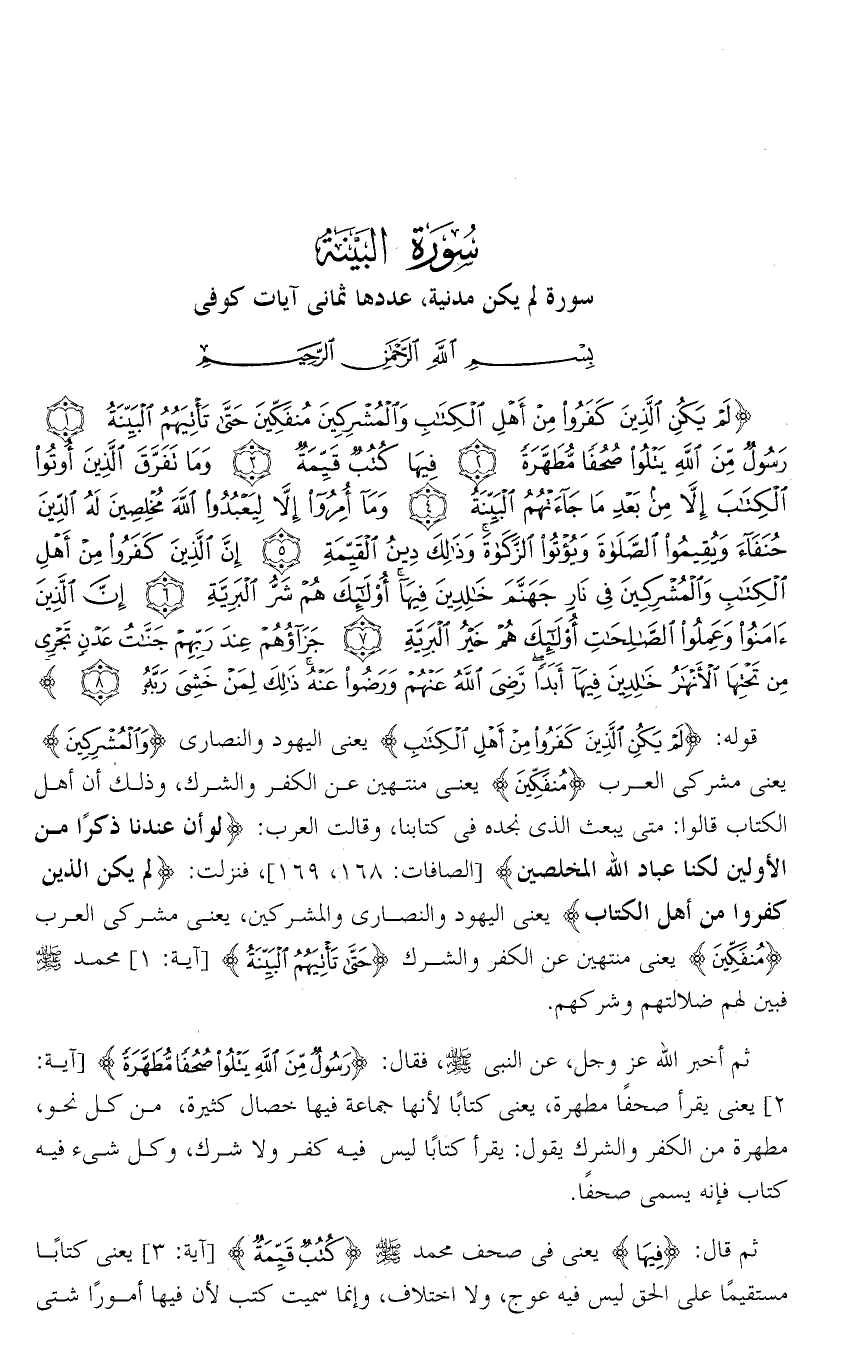 سُورَةُ البَيِّنَة
سورة لم يكن مدنية، عددها ثمانى آيات كوفى
بِسْمِ ٱللَّهِ ٱلرَّحْمَٰنِ ٱلرَّحِيمِ
﴿لَمْ يَكُنِ ٱلَّذِينَ كَفَرُوا۟ مِنْ أَهْلِ ٱلْكِتَٰبِ وَٱلْمُشْرِكِينَ مُنفَكِّينَ حَتَّىٰ تَأْتِيَهُمُ ٱلْبَيِّنَةُ ۝١
رَسُولٌ مِّنَ ٱللَّهِ يَتْلُوا۟ صُحُفًا مُّطَهَّرَةً ۝٢ فِيهَا كُتُبٌ قَيِّمَةٌ ۝٣ وَمَا تَفَرَّقَ ٱلَّذِينَ أُوتُوا۟
ٱلْكِتَٰبَ إِلَّا مِنۢ بَعْدِ مَا جَآءَتْهُمُ ٱلْبَيِّنَةُ ۝٤ وَمَآ أُمِرُوٓا۟ إِلَّا لِيَعْبُدُوا۟ ٱللَّهَ مُخْلِصِينَ لَهُ ٱلدِّينَ
حُنَفَآءَ وَيُقِيمُوا۟ ٱلصَّلَوٰةَ وَيُؤْتُوا۟ ٱلزَّكَوٰةَ ۚ وَذَٰلِكَ دِينُ ٱلْقَيِّمَةِ ۝٥ إِنَّ ٱلَّذِينَ كَفَرُوا۟ مِنْ أَهْلِ
ٱلْكِتَٰبِ وَٱلْمُشْرِكِينَ فِى نَارِ جَهَنَّمَ خَٰلِدِينَ فِيهَآ ۚ أُو۟لَٰٓئِكَ هُمْ شَرُّ ٱلْبَرِيَّةِ ۝٦ إِنَّ ٱلَّذِينَ
ءَامَنُوا۟ وَعَمِلُوا۟ ٱلصَّٰلِحَٰتِ أُو۟لَٰٓئِكَ هُمْ خَيْرُ ٱلْبَرِيَّةِ ۝٧ جَزَآؤُهُمْ عِندَ رَبِّهِمْ جَنَّٰتُ عَدْنٍ تَجْرِى
مِن تَحْتِهَا ٱلْأَنْهَٰرُ خَٰلِدِينَ فِيهَآ أَبَدًا ۖ رَّضِىَ ٱللَّهُ عَنْهُمْ وَرَضُوا۟ عَنْهُ ۚ ذَٰلِكَ لِمَنْ خَشِىَ رَبَّهُۥ ۝٨ ﴾
قوله: ﴿لَمْ يَكُنِ ٱلَّذِينَ كَفَرُوا۟ مِنْ أَهْلِ ٱلْكِتَٰبِ﴾ يعنى اليهود والنصارى ﴿وَٱلْمُشْرِكِينَ﴾
يعنى مشركى العرب ﴿مُنفَكِّينَ﴾ يعنى منتهين عن الكفر والشرك، وذلك أن أهل
الكتاب قالوا: متى يبعث الذى نجده فى كتابنا، وقالت العرب: ﴿لو أن عندنا ذكرًا من
الأولين لكنا عباد الله المخلصين﴾ [الصافات: ١٦٨، ١٦٩]، فنزلت: ﴿لم يكن الذين
كفروا من أهل الكتاب﴾ يعنى اليهود والنصارى والمشركين، يعنى مشركى العرب
﴿مُنفَكِّينَ﴾ يعنى منتهين عن الكفر والشرك ﴿حَتَّىٰ تَأْتِيَهُمُ ٱلْبَيِّنَةُ﴾ [آية: ١] محمد ﷺ
فبين لهم ضلالتهم وشركهم.
ثم أخبر الله عز وجل، عن النبى ﷺ، فقال: ﴿رَسُولٌ مِّنَ ٱللَّهِ يَتْلُوا۟ صُحُفًا مُّطَهَّرَةً﴾ [آية:
٢] يعنى يقرأ صحفًا مطهرة، يعنى كتابًا لأنها جماعة فيها خصال كثيرة، من كل نحو،
مطهرة من الكفر والشرك يقول: يقرأ كتابًا ليس فيه كفر ولا شرك، وكل شىء فيه
كتاب فإنه يسمى صحفًا.
ثم قال: ﴿فِيهَا﴾ يعنى فى صحف محمد ﷺ ﴿كُتُبٌ قَيِّمَةٌ﴾ [آية: ٣] يعنى كتابًا
مستقيمًا على الحق ليس فيه عوج، ولا اختلاف، وإنما سميت كتب لأن فيها أمورًا شتى